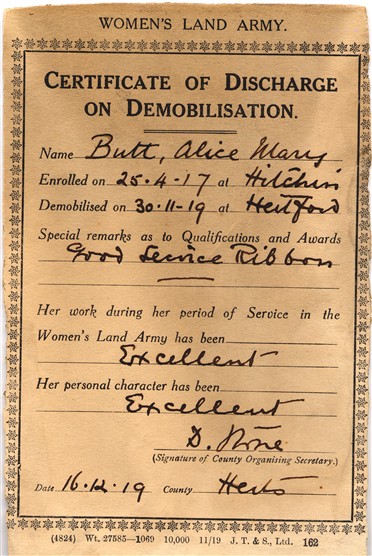 WOMEN'S LAND ARMY.
CERTIFICATE OF DISCHARGE
ON DEMOBILISATION.
Name Butt, Alice Mary
Enrolled on 25.4.17 at Hitchin
Demobilised on 30.11.19 at Hertford
Special remarks as to Qualifications and Awards
Good Service Ribbon
Her work during her period of Service in the
Women's Land Army has been
Excellent
Her personal character has been
Excellent
D.
(Signature of County Organising Secretary.)
Date 16.12.19 County Herts
(4824) Wt. 27585—1069 10,000 11/19 J. T. & S., Ltd. 162